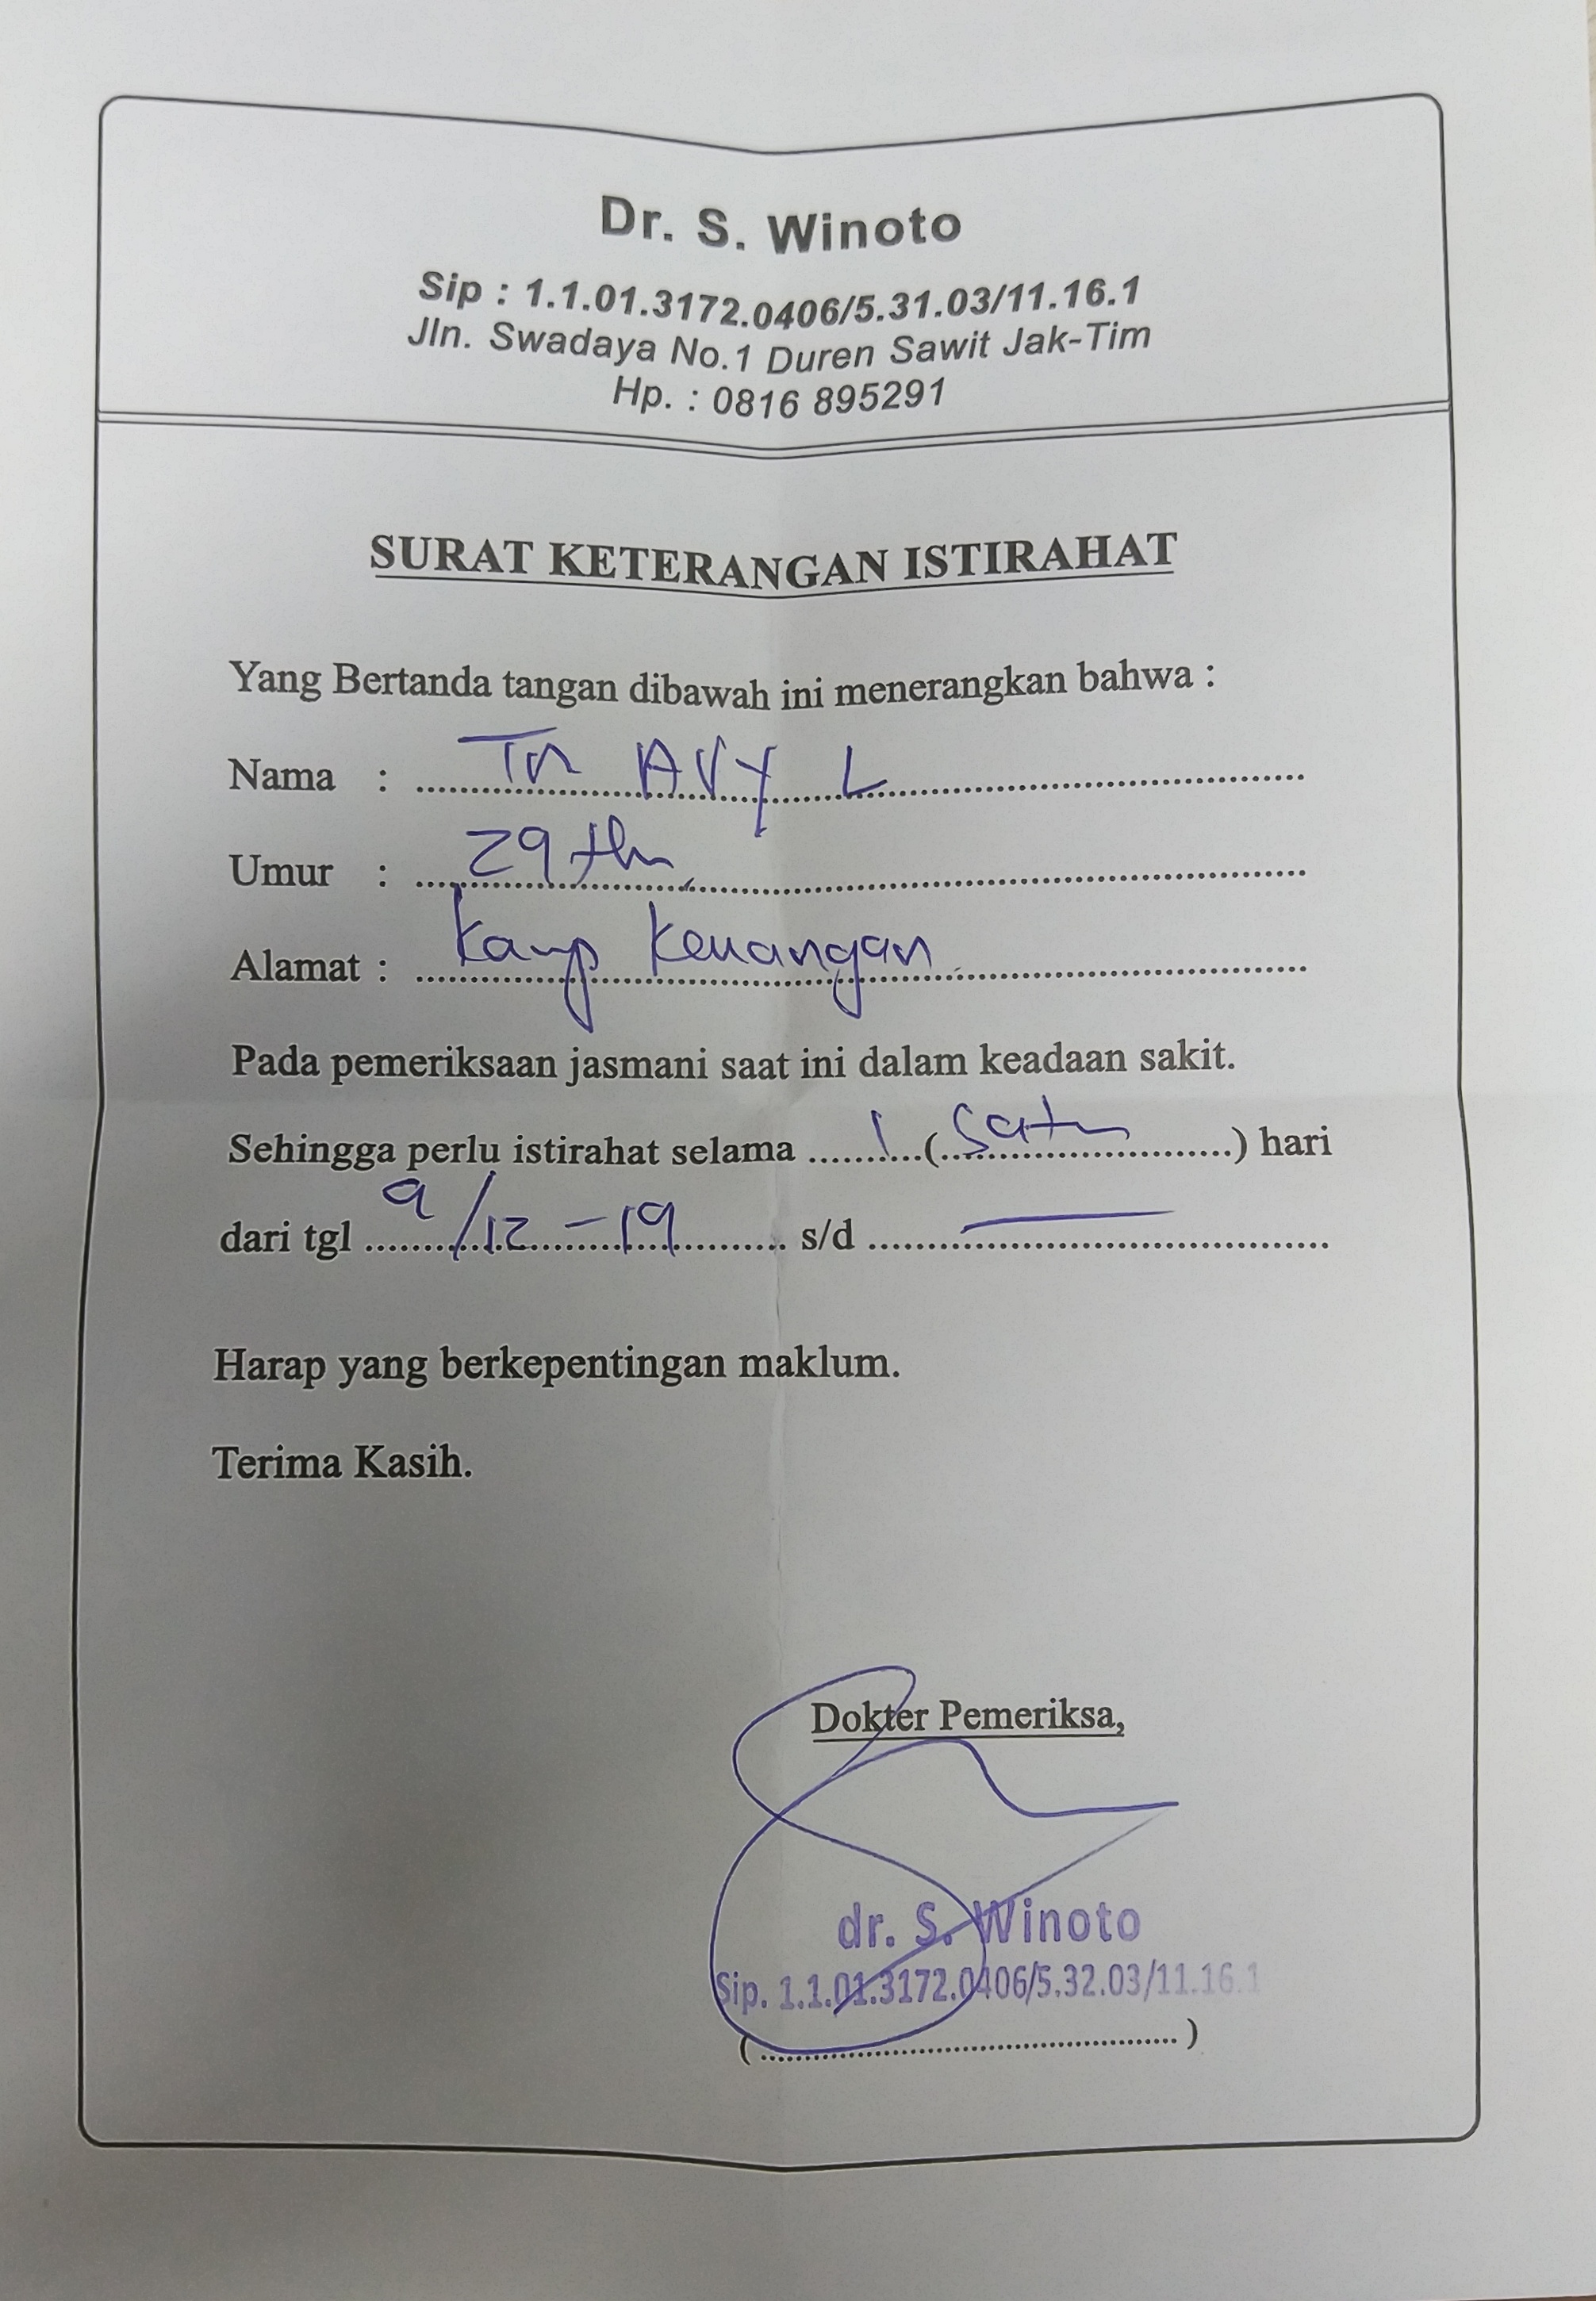 Dr. S. Winoto
Sip : 1.1.01.3172.0406/5.31.03/11.16.1
Jln. Swadaya No.1 Duren Sawit Jak-Tim
Hp. : 0816 895291
SURAT KETERANGAN ISTIRAHAT
Yang Bertanda tangan dibawah ini menerangkan bahwa :
Nama : Tn AVY L
Umur : 29 th
Alamat : Kamp Keuangan
Pada pemeriksaan jasmani saat ini dalam keadaan sakit.
Sehingga perlu istirahat selama ..........1...(...Satu...........) hari
dari tgl ...9/12-19... s/d ...—...
Harap yang berkepentingan maklum.
Terima Kasih.
Dokter Pemeriksa,
dr. S. Winoto
Sip. 1.1.01.3172.0406/5.32.03/11.16.1
(........................................)